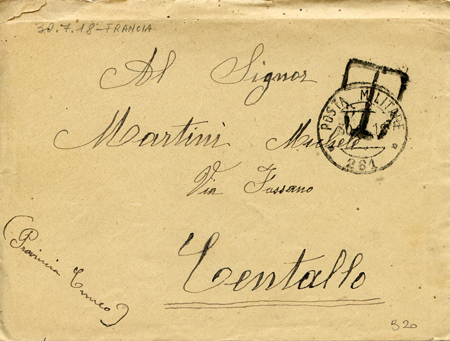 30.7.18 - FRANCIA
Al Signor
Martini Michele
Via Fossano
Centallo
(Provincia Cuneo)
T
POSTA MILITARE
261
320